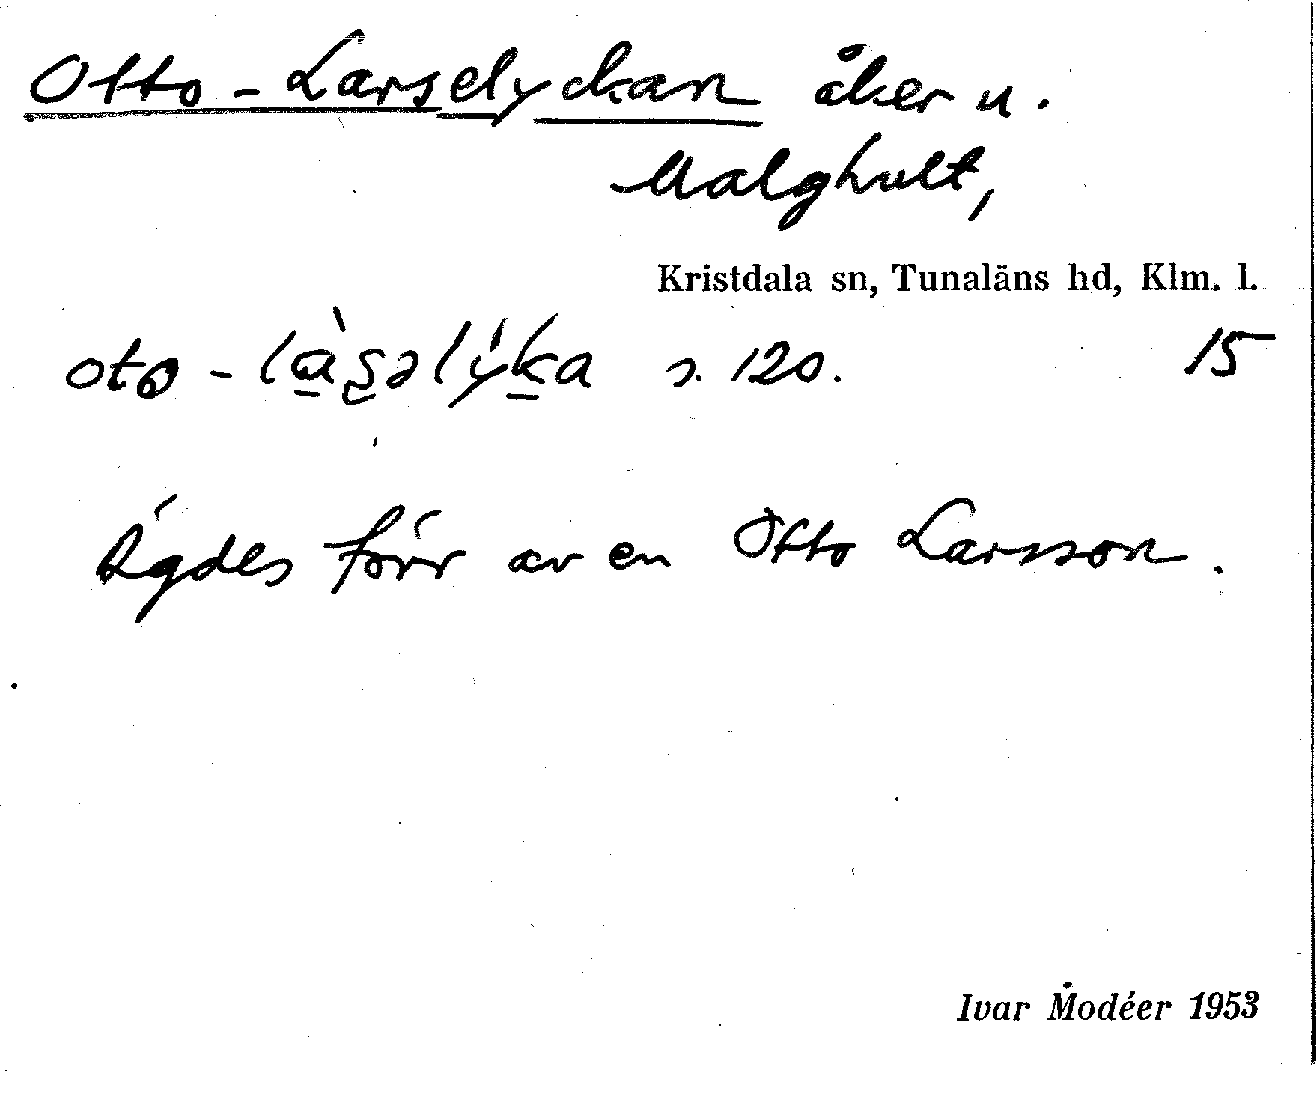 Otto-Larselyckan åker u.
Malghult,
Kristdala sn, Tunaläns hd, Klm. l.
s. 120. 15
Ägdes förr av en Otto Larsson.
Ivar Modéer 1953